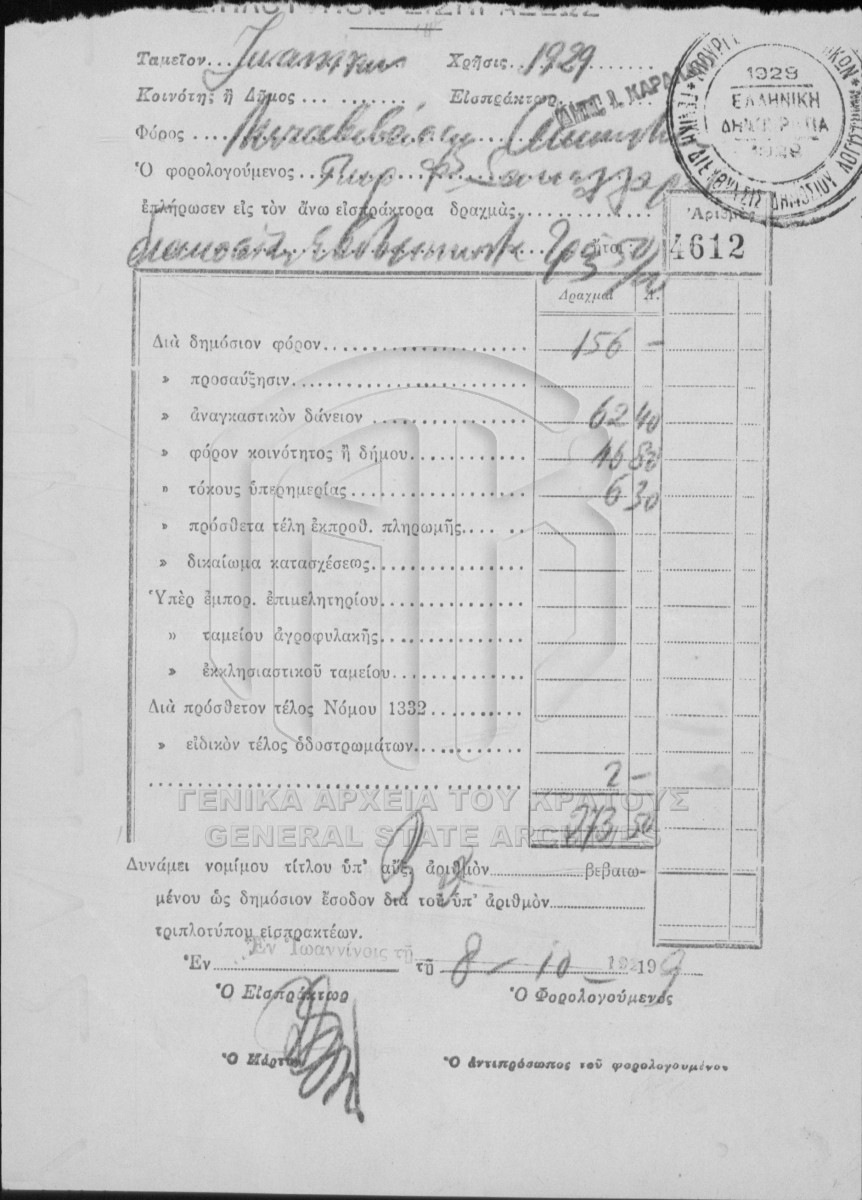 Ταμεῖον.. Ἰωαννίνων Χρῆσις..1929
Κοινότης ἢ Δῆμος Εἰσπράκτωρ
Φόρος
Ὁ φορολογούμενος
ἐπλήρωσεν εἰς τὸν ἄνω εἰσπράκτορα δραχμὰς
ἤτοι
Ἀριθμὸς
4612
1929
ΕΛΛΗΝΙΚΗ
ΔΗΜΟΚΡΑΤΙΑ
1929
Δραχμαὶ Λ.
Διὰ δημόσιον φόρον 156 –
» προσαύξησιν
» ἀναγκαστικὸν δάνειον 62 40
» φόρον κοινότητος ἢ δήμου 46 80
» τόκους ὑπερημερίας 6 30
» πρόσθετα τέλη ἐκπροθ. πληρωμῆς
» δικαίωμα κατασχέσεως
Ὑπὲρ ἐμπορ. ἐπιμελητηρίου
» ταμείου ἀγροφυλακῆς
» ἐκκλησιαστικοῦ ταμείου
Διὰ πρόσθετον τέλος Νόμου 1332
» εἰδικὸν τέλος ὁδοστρωμάτων
2 –
273 50
ΓΕΝΙΚΑ ΑΡΧΕΙΑ ΤΟΥ ΚΡΑΤΟΥΣ
GENERAL STATE ARCHIVES
Δυνάμει νομίμου τίτλου ὑπ' αὔξ. ἀριθμὸν βεβαιω-
μένου ὡς δημόσιον ἔσοδον διὰ τοῦ ὑπ' ἀριθμὸν
τριπλοτύπου εἰσπρακτέων.
Ἐν Ἰωαννίνοις τῇ
Ἐν τῇ 8 – 10 – 192 19 9
Ὁ Εἰσπράκτωρ Ὁ Φορολογούμενος
Ὁ Μάρτυς Ὁ ἀντιπρόσωπος τοῦ φορολογουμένου